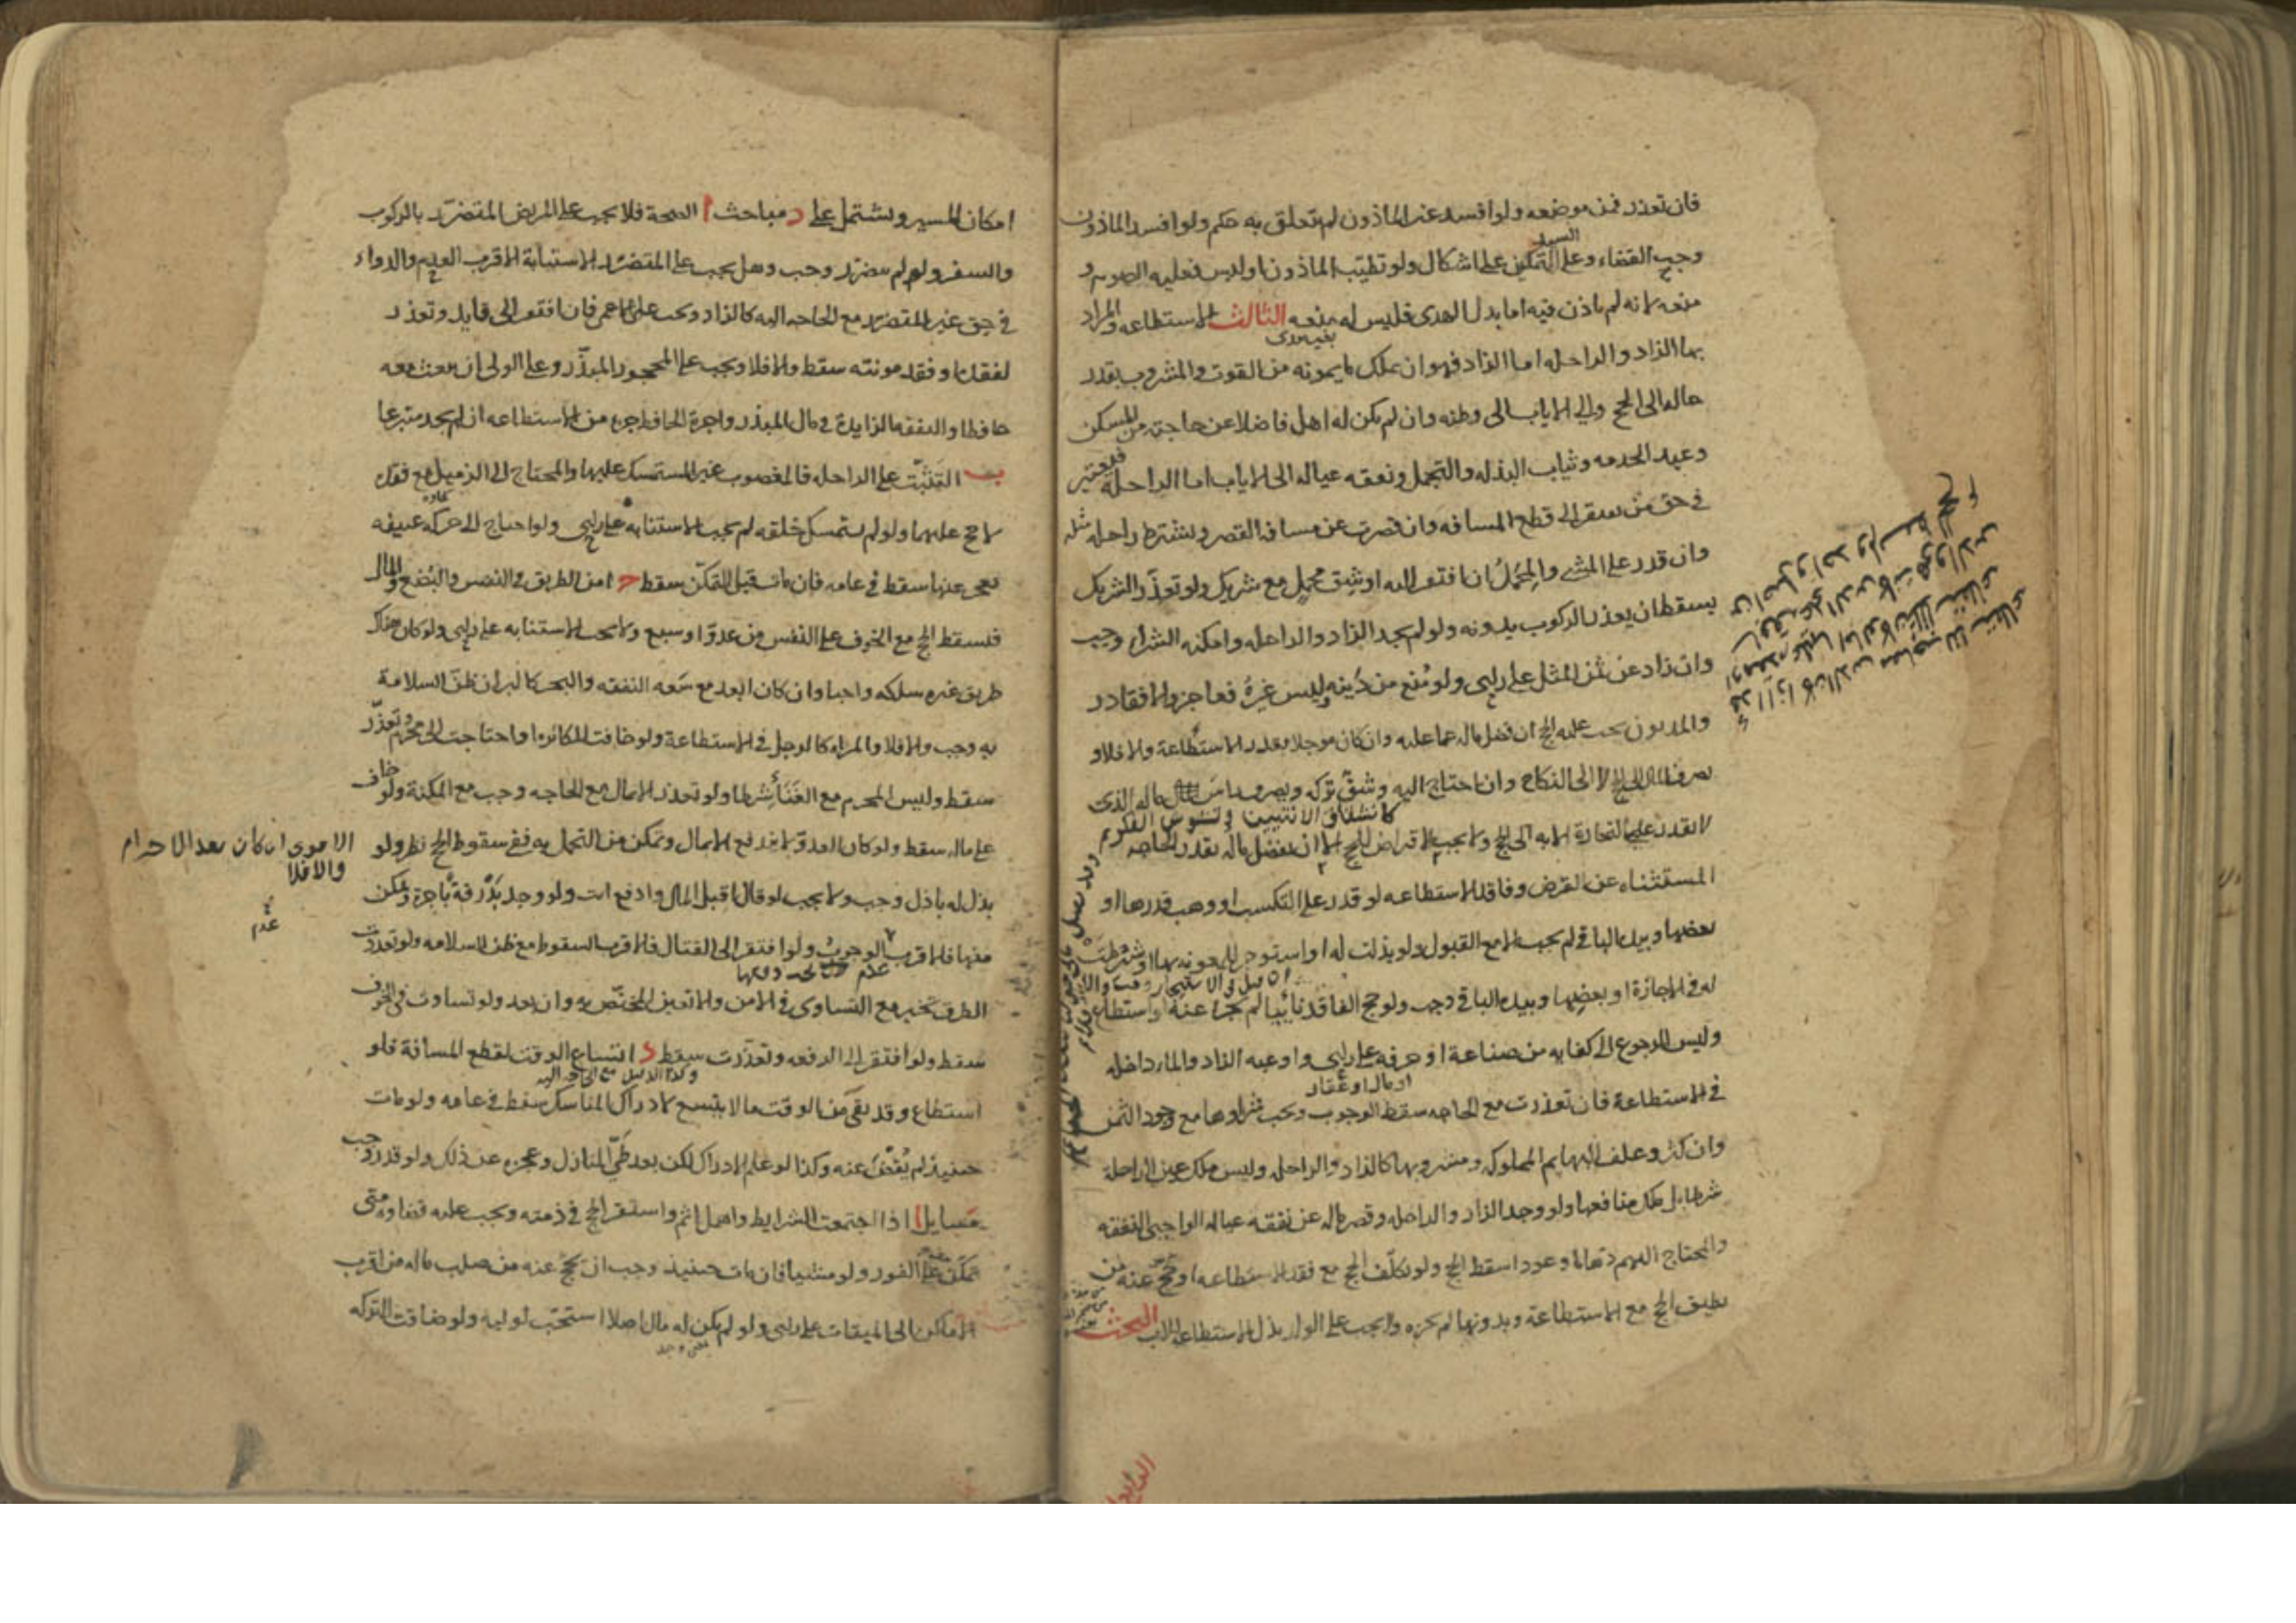 فان تعذر فمن موضعه ولو افسد غير الماذون لم يتعلق به حكم ولو افسد الماذون
وجب القضاء وعلى السيد التمكين على اشكال ولو تطيب الماذون او لبس فعليه الصوم و
منعه لانه لم ياذن فيه اما بدل الهدى فليس له منعه الثالث الاستطاعه والمراد
بها الزاد والراحله اما الزاد فهو ان يملك ما يمونه من القوت والمشروب بقدر
حاله الى الحج والى الاياب الى وطنه وان لم يكن له اهل فاضلا عن حاجته من المسكن
وعبد الخدمه وثياب البذله والتجمل ونفقه عياله الى الاياب اما الراحلة فتعتبر
في حق من يفتقر الى قطع المسافه وان قصرت عن مسافه القصر ويشترط راحله مثله
وان قدر على المشي والمحمل ان افتقر اليه او شق محمل مع شريك ولو تعذر الشريك
سقط ان تعذر الركوب بدونه ولو لم يجد الزاد والراحله وامكنه الشراء وجب
وان زاد عن ثمن المثل على راى ولو منع من دينه وليس غيره فعاجز والا فقادر
والمديون يجب عليه الحج ان فضل ماله عما عليه وان كان موجلا بقدر الاستطاعة والا فلا و
يصرف المال الى الحج لا الى النكاح وان احتاج اليه وشق تركه ويصرف راس ماله الذى
لا يقدر على التجارة الا به الى الحج ولا يجب الاقتراض للحج الا ان يفضل ماله بقدر الحاجه
المستثناه عن القرض وفاقد الاستطاعه لو قدر على التكسب او وهب قدرها او
بعضها وبيده الباقي لم يجب الا مع القبول ولو بذلت له او استوجر للمعونه بها او شرطت
له في الاجازة او بعضها وبيده الباقي وجب ولو حج الفاقد نائبا لم يجزا عنه لو استطاع
وليس الرجوع الى كفايه من صناعة او حرفه على راى واوعيه الزاد والماء داخله
او مال او عقار
في الاستطاعة فان تعذرت مع الحاجه سقط الوجوب ويجب شراوها مع وجود الثمن
وان كثر وعلف البهايم المملوكه ومشروبها كالزاد والراحله وليس ملك عين الراحلة
شرطا بل ملك منافعها ولو وجد الزاد والراحله وقصر ماله عن نفقه عياله الواجبى النفقه
والمحتاج اليهم ذهابا وعودا سقط الحج ولو تكلف الحج مع فقد الاستطاعه او حج عنه من
يطيق الحج مع الاستطاعة وبدونها لم يجزه ولا يجب على الولد بذل الاستطاعه للاب البحث
امكان المسير ويشتمل على د مباحث ا الصحة فلا يجب على المريض المتضرر بالركوب
والسفر ولو لم يتضرر وجب وهل يجب على المتضرر الاستنابة الاقرب العدم والدواء
في حق غير المتضرر مع الحاجه اليه كالزاد ويجب على الاعمى فان افتقر الى قايد وتعذر
لفقده او فقد مونته سقط والا فلا ويجب على المحجور المبذر وعلى الولي ان يبعث معه
حافظا والنفقه الزايدة في مال المبذر واجرة الحافظ جزء من الاستطاعه ان لم يجد متبرعا
ب التثبت على الراحله فالمغصوب غير المستمسك عليها والمحتاج الى الزميل مع فقده
لا حج عليهما ولو لم يستمسك خلقه لم يجب الاستنابه على راى ولو احتاج الى حركه عنيفه
يعجز عنها سقط في عامه فان مات قبل التمكن سقط ح امن الطريق في النفس والبضع والمال
فيسقط الحج مع الخوف على النفس من عدو او سبع ولا يجب الاستنابه على راى ولو كان هناك
طريق غيره سلكه واجبا وان كان ابعد مع سعه النفقه والبحر كالبر ان ظن السلامة
به وجب والا فلا والمراه كالرجل في الاستطاعة ولو خافت المكابره او احتاجت الى محرم وتعذر
سقط وليس المحرم مع الغناء شرطا ولو تعذر الا بمال مع الحاجه وجب مع المكنة ولو خاف
على ماله سقط ولو كان العدو لا يندفع الا بمال وتمكن من التحمل به ففي سقوط الحج نظر ولو
الاقوى ان كان بعد الاحرام
والا فلا
بذل له باذل وجب ولا يجب لو قال اقبل المال وادفع انت ولو وجد بذرقة باجرة وتمكن
منها فالاقرب عدم الوجوب ولو افتقر الى القتال فالاقرب السقوط مع ظن السلامه ولو تعددت
الطرق تخير مع التساوى في الامن والا تعين المختص به وان بعد ولو تساوت في الخوف
سقط ولو افتقر الى الرفقه وتعذرت سقط د اتساع الوقت لقطع المسافة فلو
استطاع وقد بقى من الوقت ما لا يتسع لادراك المناسك سقط في عامه ولو مات
حينيذ لم يقض عنه وكذا لو علم الادراك لكن بعد طي المنازل وعجزه عن ذلك ولو قدر وجب
مسايل ا اذا اجتمعت الشرايط واهمل اثم واستقر الحج في ذمته ويجب عليه قضاوه متى
تمكن منه على الفور ولو مشيا فان مات حينيذ وجب ان يحج عنه من صلب ماله من اقرب
الاماكن الى الميقات على راى ولو لم يكن له مال اصلا استحب لوليه ولو ضاقت التركه